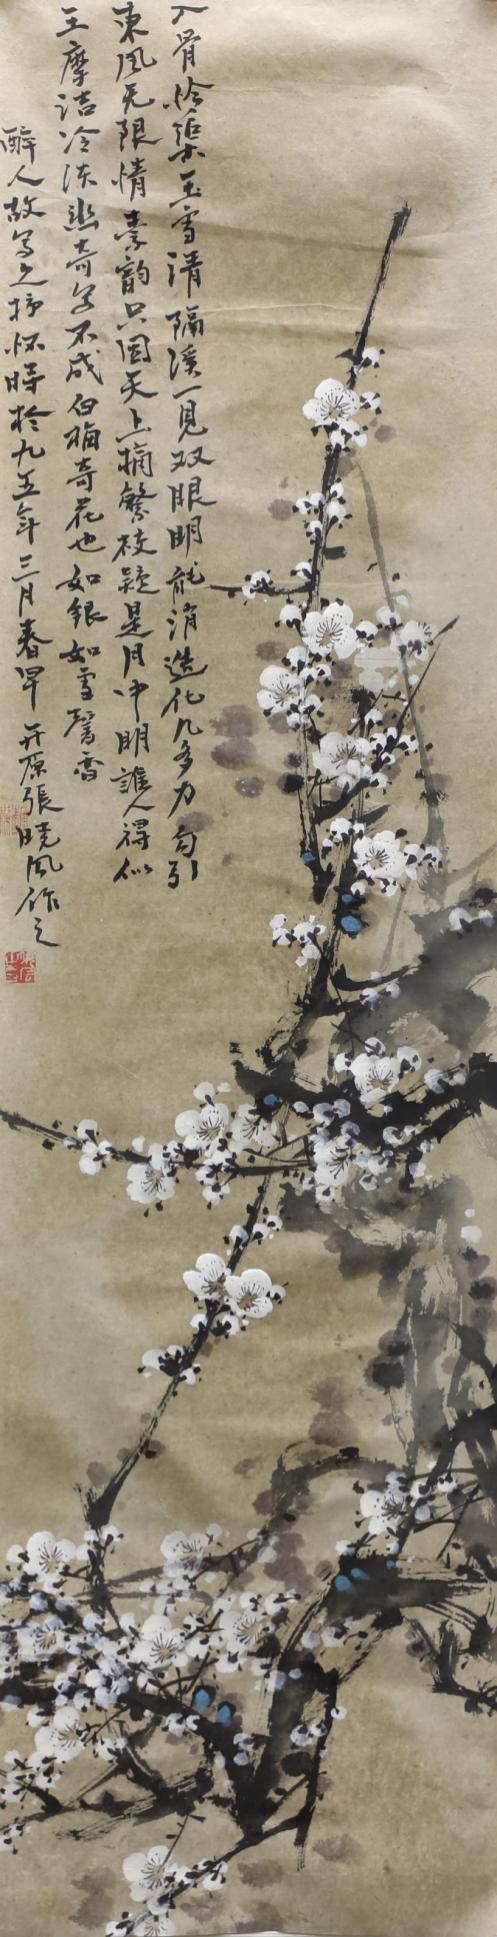 入骨怜渠玉雪清隔溪一見双眼明能消造化几多力勾引
東風无限情素韵只因天上摘繁枝疑是月中明誰人得似
王摩洁冷淡幽奇写不成白梅奇花也如銀如雪馨香
醉人故写之抒怀時於九五年三月春早开原張曉风作之